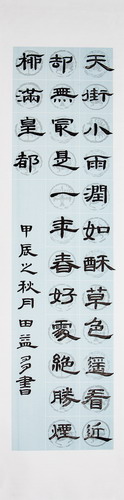 天街小雨潤如酥草色遥看近
却無冣是一年春好處絕勝煙
栁滿皇都
甲辰之秋月田益多書